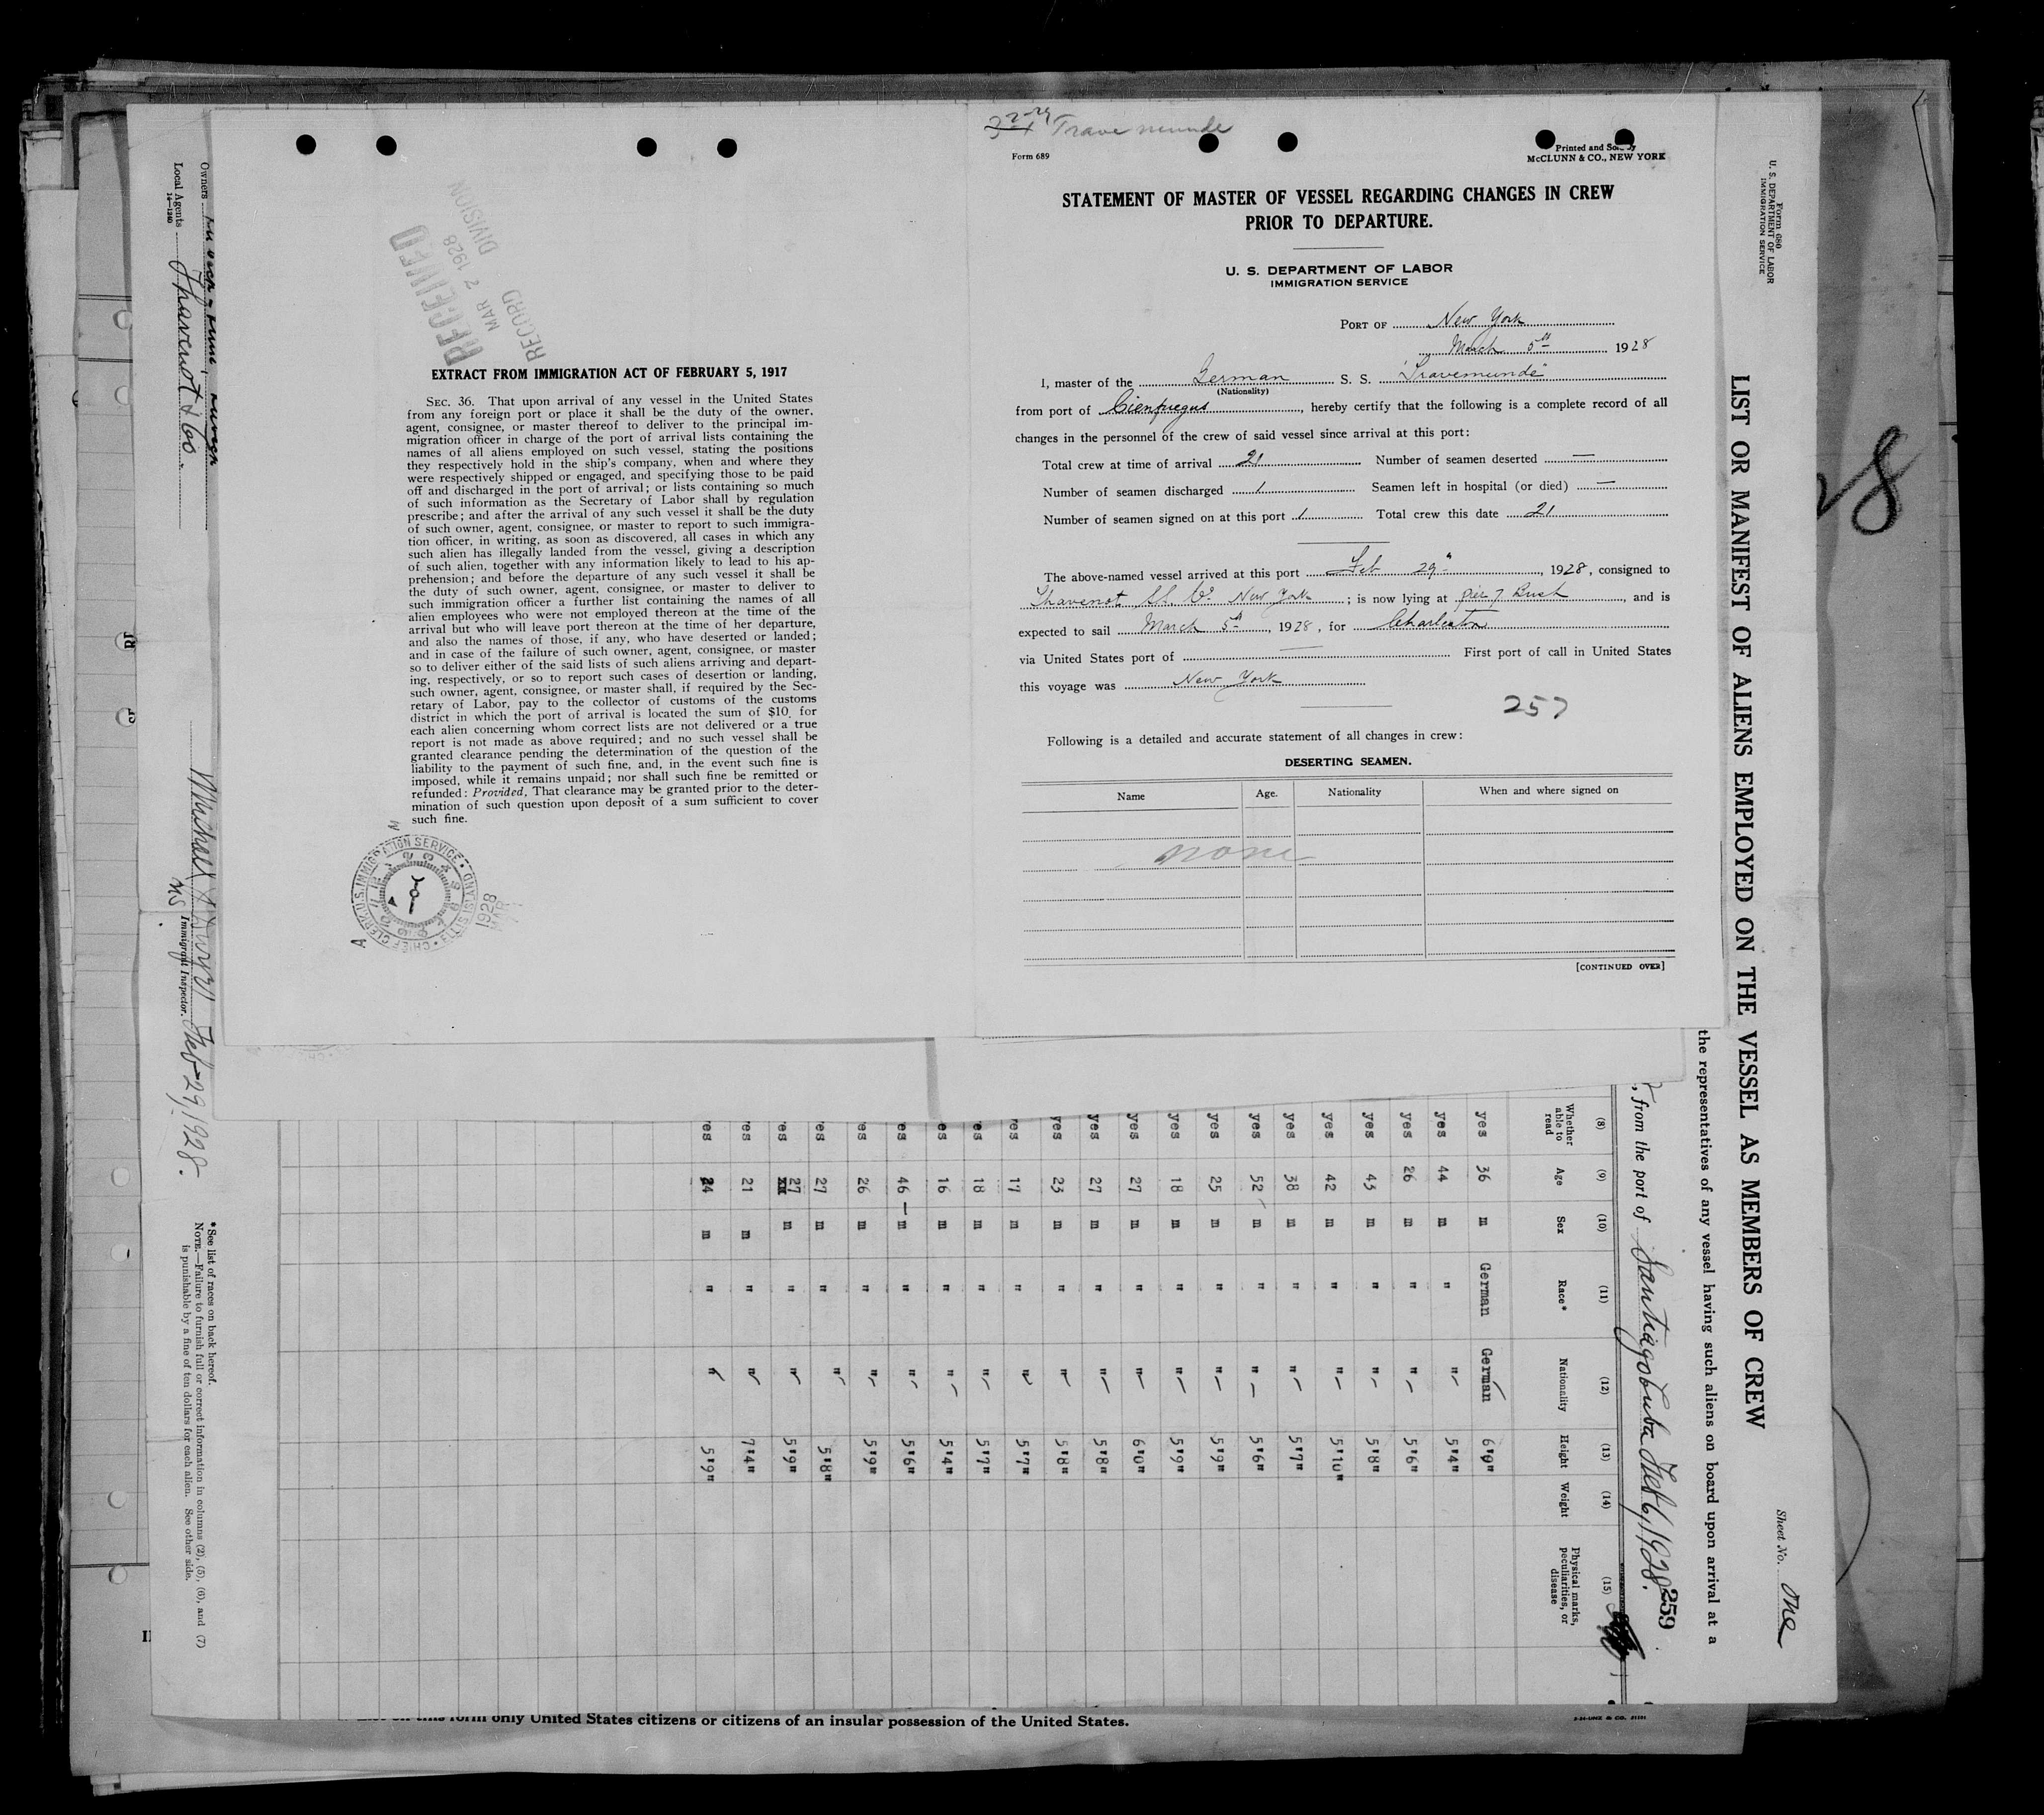 Travemunde
Form 689
Printed and Sold by
McCLUNN & CO., NEW YORK
STATEMENT OF MASTER OF VESSEL REGARDING CHANGES IN CREW
PRIOR TO DEPARTURE.
U. S. DEPARTMENT OF LABOR
IMMIGRATION SERVICE
PORT OF New York
March 5th 1928
I, master of the German S. S. "Travemünde"
(Nationality)
from port of Cienfuegus, hereby certify that the following is a complete record of all
changes in the personnel of the crew of said vessel since arrival at this port:
Total crew at time of arrival 21 Number of seamen deserted —
Number of seamen discharged 1 Seamen left in hospital (or died) —
Number of seamen signed on at this port 1 Total crew this date 21
The above-named vessel arrived at this port Feb 29", 1928, consigned to
Thavenot & Co New York; is now lying at pier 7 Bush, and is
expected to sail March 5th, 1928, for Charleston
via United States port of — First port of call in United States
this voyage was New York
257
Following is a detailed and accurate statement of all changes in crew:
DESERTING SEAMEN.
Name Age. Nationality When and where signed on
none
[CONTINUED OVER]
RECEIVED
MAR 2 1928
RECORD DIVISION
EXTRACT FROM IMMIGRATION ACT OF FEBRUARY 5, 1917
SEC. 36. That upon arrival of any vessel in the United States
from any foreign port or place it shall be the duty of the owner,
agent, consignee, or master thereof to deliver to the principal im-
migration officer in charge of the port of arrival lists containing the
names of all aliens employed on such vessel, stating the positions
they respectively hold in the ship's company, when and where they
were respectively shipped or engaged, and specifying those to be paid
off and discharged in the port of arrival; or lists containing so much
of such information as the Secretary of Labor shall by regulation
prescribe; and after the arrival of any such vessel it shall be the duty
of such owner, agent, consignee, or master to report to such immigra-
tion officer, in writing, as soon as discovered, all cases in which any
such alien has illegally landed from the vessel, giving a description
of such alien, together with any information likely to lead to his ap-
prehension; and before the departure of any such vessel it shall be
the duty of such owner, agent, consignee, or master to deliver to
such immigration officer a further list containing the names of all
alien employees who were not employed thereon at the time of the
arrival but who will leave port thereon at the time of her departure,
and also the names of those, if any, who have deserted or landed;
and in case of the failure of such owner, agent, consignee, or master
so to deliver either of the said lists of such aliens arriving and depart-
ing, respectively, or so to report such cases of desertion or landing,
such owner, agent, consignee, or master shall, if required by the Sec-
retary of Labor, pay to the collector of customs of the customs
district in which the port of arrival is located the sum of $10 for
each alien concerning whom correct lists are not delivered or a true
report is not made as above required; and no such vessel shall be
granted clearance pending the determination of the question of the
liability to the payment of such fine, and, in the event such fine is
imposed, while it remains unpaid; nor shall such fine be remitted or
refunded: Provided, That clearance may be granted prior to the deter-
mination of such question upon deposit of a sum sufficient to cover
such fine.
CHIEF CLERK U.S. IMMIGRATION SERVICE · ELLIS ISLAND
1928
MAR
Form 680
U. S. DEPARTMENT OF LABOR
IMMIGRATION SERVICE
Sheet No. One
LIST OR MANIFEST OF ALIENS EMPLOYED ON THE VESSEL AS MEMBERS OF CREW
the representatives of any vessel having such aliens on board upon arrival at a
, from the port of Santiago Cuba Feb 6/1928.
259
(8) (9) (10) (11) (12) (13) (14) (15)
Whether able to read Age Sex Race* Nationality Height Weight Physical marks, peculiarities, or disease
yes 36 m German German 6'0"
yes 44 m " " 5'4"
yes 26 m " " 5'6"
yes 43 m " " 5'8"
yes 42 m " " 5'10"
yes 38 m " " 5'7"
yes 52 m " " 5'6"
yes 25 m " " 5'9"
yes 18 m " " 5'9"
yes 27 m " " 6'0"
yes 27 m " " 5'8"
yes 23 m " " 5'8"
yes 17 m " " 5'7"
yes 18 m " " 5'7"
yes 16 m " " 5'4"
yes 46 m " " 5'6"
yes 26 m " " 5'9"
yes 27 m " " 5'8"
yes 27 m " " 5'9"
yes 21 m " " 7'4"
yes 24 m " " 5'9"
Owners
Local Agents Thavenot & Co.
14—1240
Immigrant Inspector. Feb 29/1928.
*See list of races on back hereof.
NOTE.—Failure to furnish full or correct information in columns (2), (5), (6), and (7)
is punishable by a fine of ten dollars for each alien. See other side.
on this form only United States citizens or citizens of an insular possession of the United States.
28